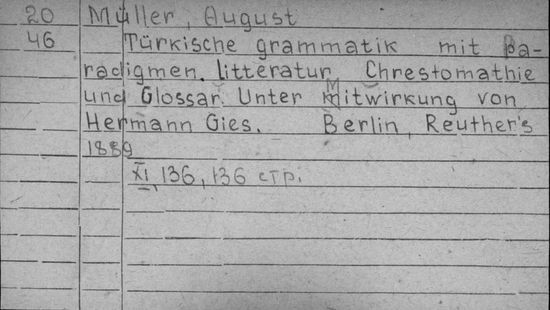 20 Müller, August
46 Türkische grammatik mit pa-
radigmen, litteratur, Chrestomathie
und Glossar. Unter Mitwirkung von
Hermann Gies. Berlin, Reuther's
1889
XI, 136, 136 стр.